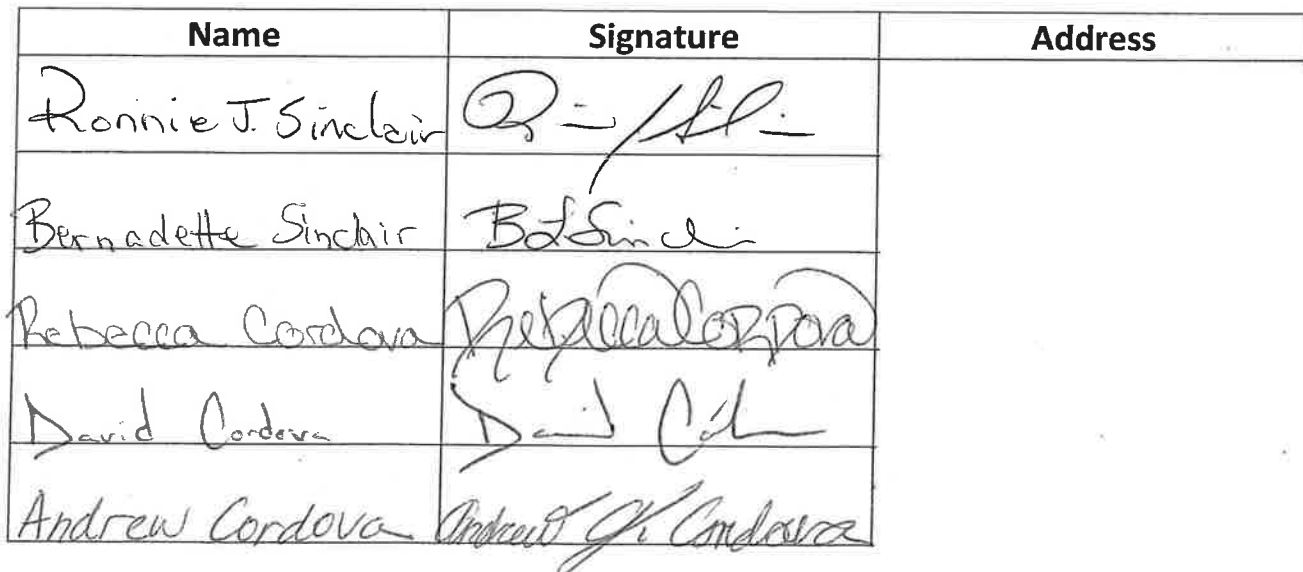 Name Signature Address
Ronnie J. Sinclair
Bernadette Sinclair
Rebecca Cordova Rebecca Cordova
David Cordova David
Andrew Cordova Andrew Cordova